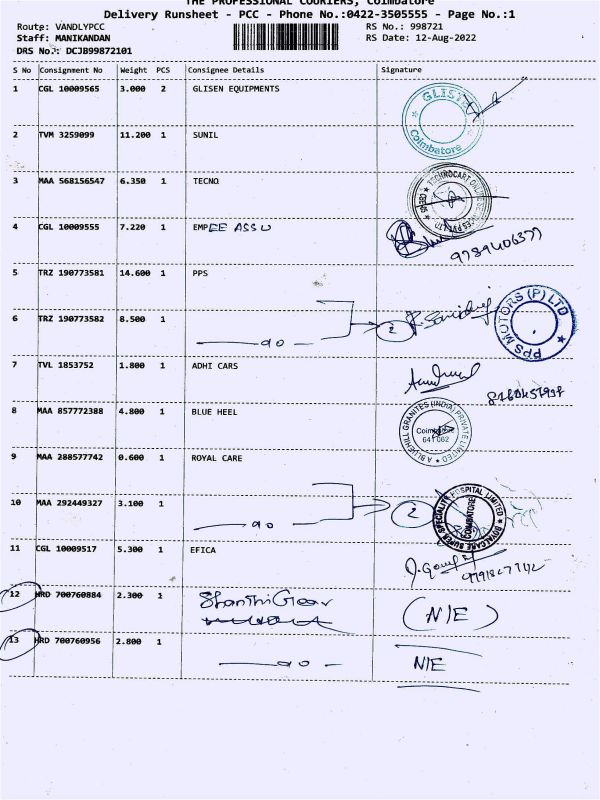 THE PROFESSIONAL COURIERS, Coimbatore
Delivery Runsheet - PCC - Phone No.:0422-3505555 - Page No.:1
Route: VANDLYPCC RS No.: 998721
Staff: MANIKANDAN RS Date: 12-Aug-2022
DRS No.: DCJB99872101
S No Consignment No Weight PCS Consignee Details Signature
1 CGL 10009565 3.000 2 GLISEN EQUIPMENTS
Coimbatore
2 TVM 3259099 11.200 1 SUNIL
3 MAA 568156547 6.350 1 TECNO
4 CGL 10009555 7.220 1 EMPEE ASSU
9789406377
5 TRZ 190773581 14.600 1 PPS
PPS MOTORS (P) LTD
6 TRZ 190773582 8.500 1 do 2
7 TVL 1853752 1.800 1 ADHI CARS
8 MAA 857772388 4.800 1 BLUE HEEL
A BLUEHILL GRANITES (INDIA) PRIVATE LIMITED
Coimbatore
641 062
9 MAA 288577742 0.600 1 ROYAL CARE
10 MAA 292449327 3.100 1 do 2
ROYALCARE SUPER SPECIALITY HOSPITAL LIMITED
COIMBATORE
11 CGL 10009517 5.300 1 EFICA
12 HRD 700760884 2.300 1 Shanthi Gear (N/E)
13 HRD 700760956 2.800 1 do N/E